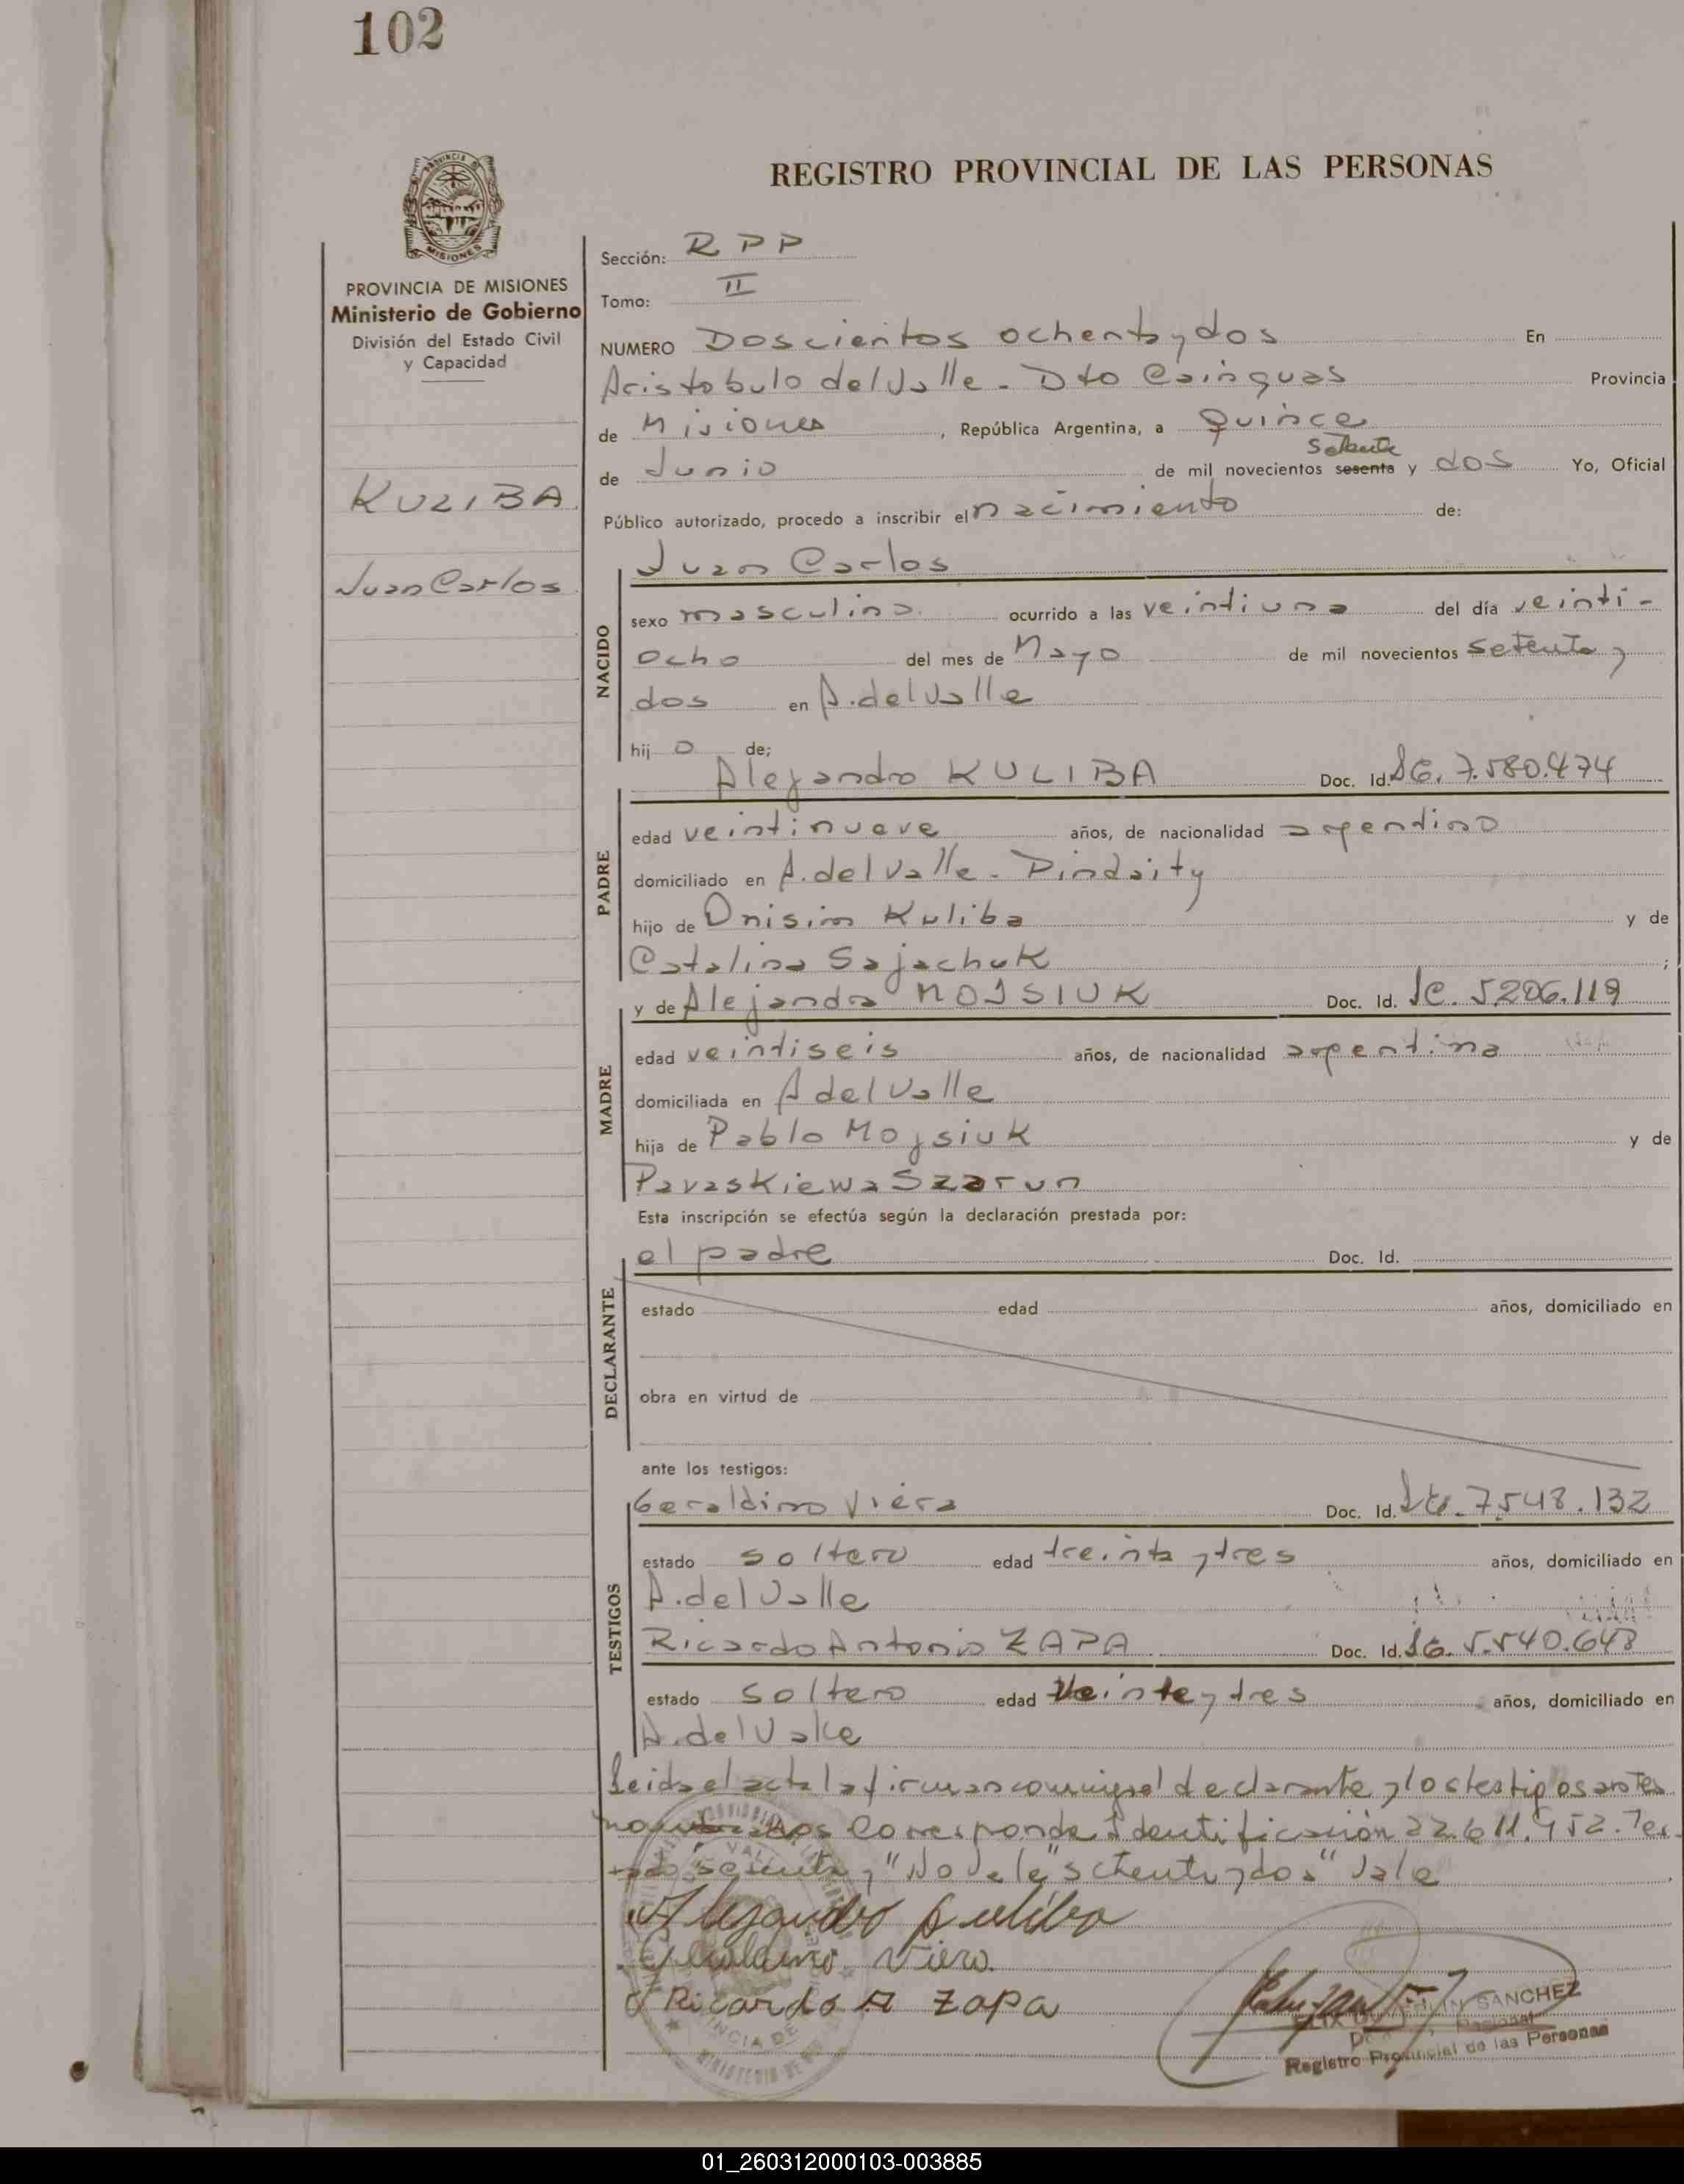 102
REGISTRO PROVINCIAL DE LAS PERSONAS
MISIONES
PROVINCIA DE MISIONES
Ministerio de Gobierno
División del Estado Civil
y Capacidad
KULIBA
Juan Carlos
Sección: RPP
Tomo: II
NUMERO Doscientos ochenta y dos En
Aristobulo del Valle - Dto Cainguas Provincia
de Misiones, República Argentina, a Quince
Setenta
de Junio de mil novecientos sesenta y dos Yo, Oficial
Público autorizado, procedo a inscribir el nacimiento de:
Juan Carlos
NACIDO
sexo masculino ocurrido a las veintiuna del día veinti-
ocho del mes de Mayo de mil novecientos setenta y
dos en A. del Valle
hijo de;
Alejandro KULIBA Doc. Id. 7.580.474
PADRE
edad veintinueve años, de nacionalidad argentino
domiciliado en A. del Valle - Pindaity
hijo de Onisim Kuliba y de
Catalina Sajachuk ;
y de Alejandra MOJSIUK Doc. Id. 5.206.119
MADRE
edad veintiseis años, de nacionalidad argentina
domiciliada en A del Valle
hija de Pablo Mojsiuk y de
Paraskiewa Szarun
Esta inscripción se efectúa según la declaración prestada por:
el padre Doc. Id.
DECLARANTE
estado edad años, domiciliado en
obra en virtud de
ante los testigos:
Geraldino Viera Doc. Id. 7.548.132
TESTIGOS
estado soltero edad treinta y tres años, domiciliado en
A. del Valle
Ricardo Antonio ZAPA Doc. Id. 5.540.648
estado soltero edad Veinte y tres años, domiciliado en
A. del Valle
Leida el acta la firman conmigo el declarante y los testigos antes
nombrados Corresponde Identificación 22.611.952. Tes-
tado "sesenta" "No Vale" "setenta y dos" Vale
Alejandro Kuliba
Geraldino Viera
Ricardo A Zapa
SANCHEZ
Registro Provincial de las Personas
01_260312000103-003885